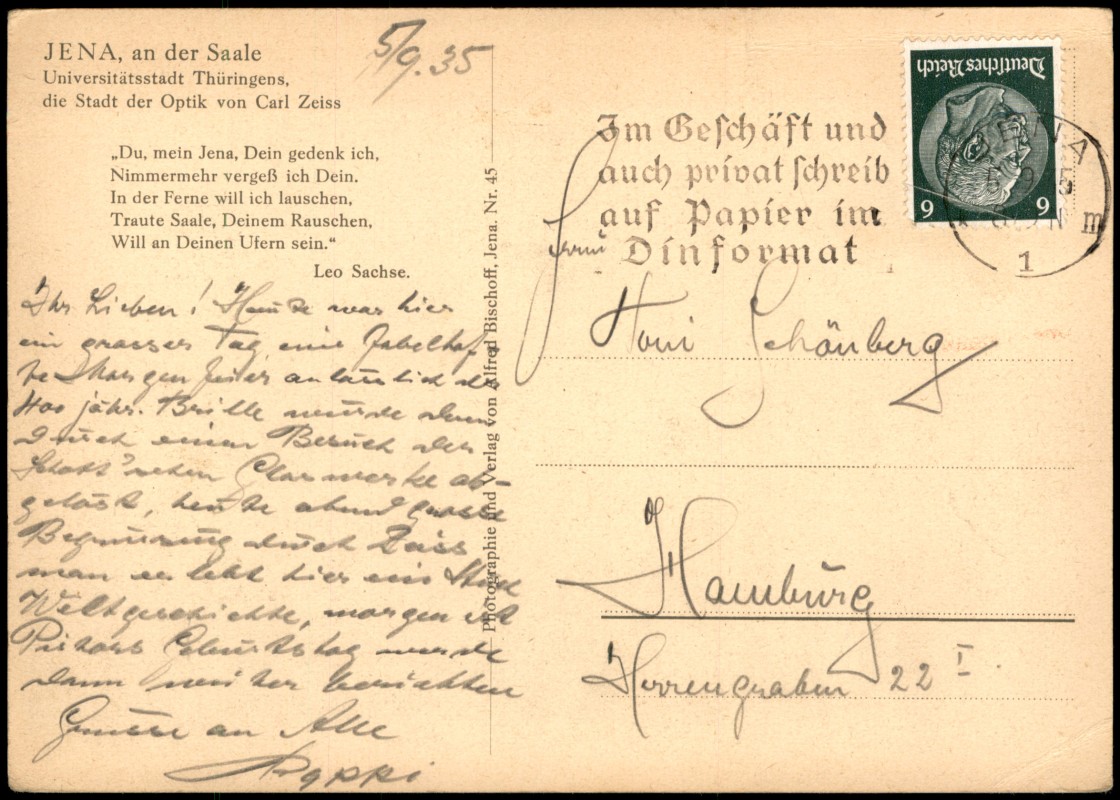 JENA, an der Saale
Universitätsstadt Thüringens,
die Stadt der Optik von Carl Zeiss
5/9.35
„Du, mein Jena, Dein gedenk ich,
Nimmermehr vergeß ich Dein.
In der Ferne will ich lauschen,
Traute Saale, Deinem Rauschen,
Will an Deinen Ufern sein.“
Leo Sachse.
Ihr Lieben! Heute war hier
ein grosser Tag, eine fabelhaf
te Morgenfeier anlässlich der
400 jähr. Brille wurde dann
durch einen Besuch der
Schott'schen Glaswerke ab-
gelöst, heute abend grosse
Begrüssung durch Zeiss
man erlebt hier ein Stück
Weltgeschichte, morgen ist
Geburtstag werde
dann weiter berichten
Grüsse an Alle
Pappi
Photographie und Verlag von Alfred Bischoff, Jena. Nr. 45
Im Geschäft und
auch privat schreib
auf Papier im
Dinformat
Deutsches Reich
6 6
JENA
5.9.35
m
1
Familie
Schönberg
Hamburg
Herrengraben 22 I